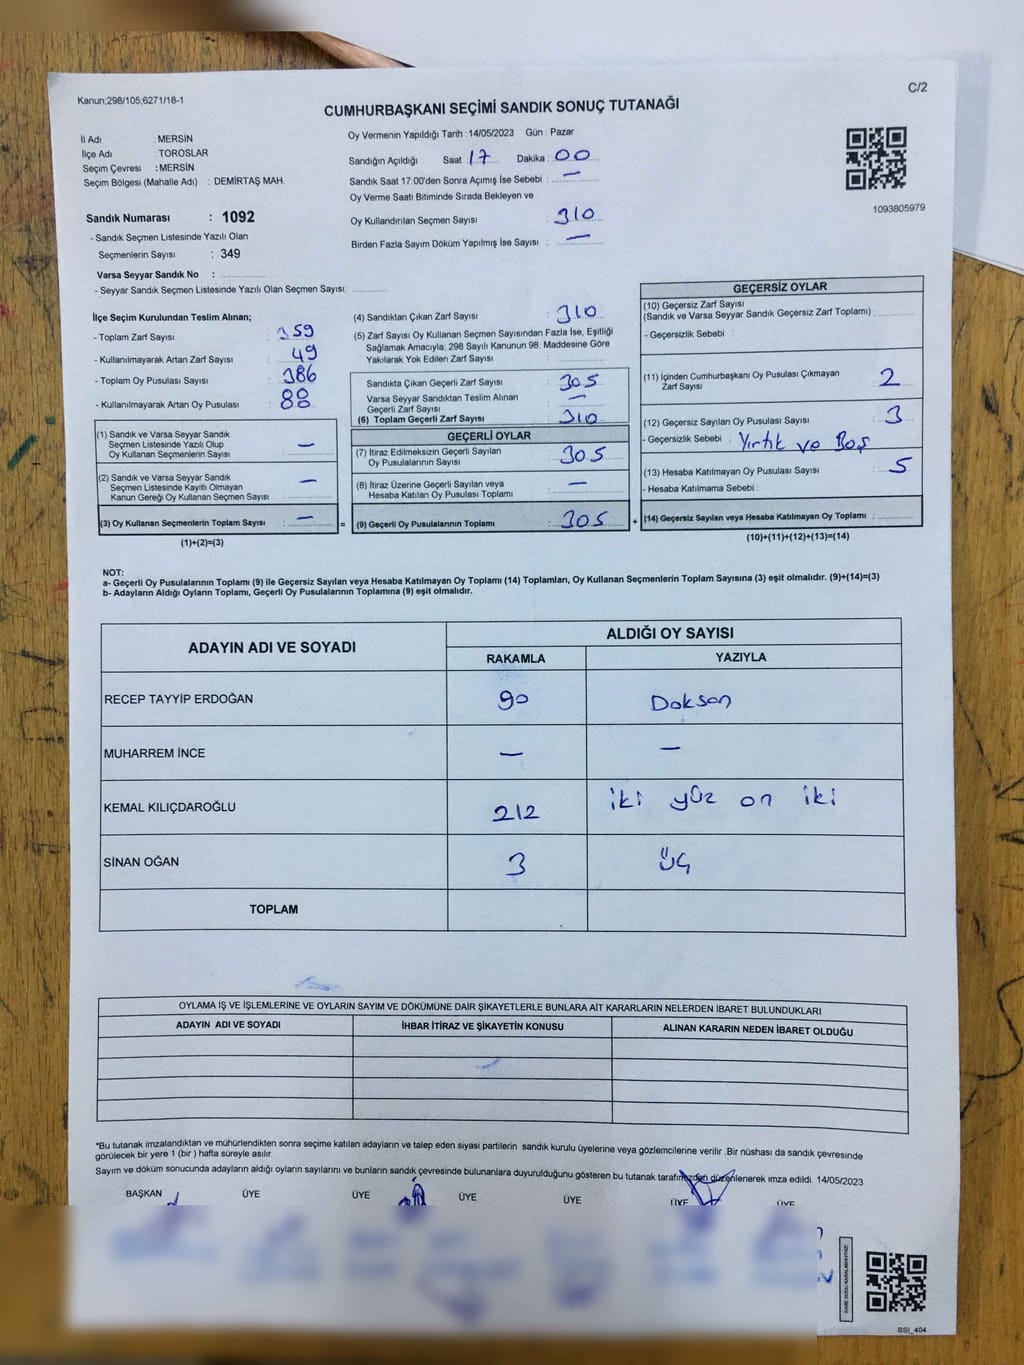 Kanun;298/105;6271/18-1
C/2
CUMHURBAŞKANI SEÇİMİ SANDIK SONUÇ TUTANAĞI
İl Adı : MERSİN
İlçe Adı : TOROSLAR
Seçim Çevresi : MERSİN
Seçim Bölgesi (Mahalle Adı) : DEMİRTAŞ MAH.
Sandık Numarası : 1092
- Sandık Seçmen Listesinde Yazılı Olan
Seçmenlerin Sayısı : 349
Varsa Seyyar Sandık No :
- Seyyar Sandık Seçmen Listesinde Yazılı Olan Seçmen Sayısı:
Oy Vermenin Yapıldığı Tarih : 14/05/2023 Gün : Pazar
Sandığın Açıldığı Saat 17 Dakika : 00
Sandık Saat 17.00'den Sonra Açımış İse Sebebi : —
Oy Verme Saati Bitiminde Sırada Bekleyen ve
Oy Kullandırılan Seçmen Sayısı : 310
Birden Fazla Sayım Döküm Yapılmış İse Sayısı : —
1093805979
İlçe Seçim Kurulundan Teslim Alınan;
- Toplam Zarf Sayısı : 359
- Kullanılmayarak Artan Zarf Sayısı : 49
- Toplam Oy Pusulası Sayısı : 386
- Kullanılmayarak Artan Oy Pusulası : 88
(1) Sandık ve Varsa Seyyar Sandık
Seçmen Listesinde Yazılı Olup
Oy Kullanan Seçmenlerin Sayısı : —
(2) Sandık ve Varsa Seyyar Sandık
Seçmen Listesinde Kayıtlı Olmayan
Kanun Gereği Oy Kullanan Seçmen Sayısı : —
(3) Oy Kullanan Seçmenlerin Toplam Sayısı : — =
(1)+(2)=(3)
(4) Sandıktan Çıkan Zarf Sayısı : 310
(5) Zarf Sayısı Oy Kullanan Seçmen Sayısından Fazla İse, Eşitliği
Sağlamak Amacıyla; 298 Sayılı Kanunun 98. Maddesine Göre
Yakılarak Yok Edilen Zarf Sayısı :
Sandıkta Çıkan Geçerli Zarf Sayısı : 305
Varsa Seyyar Sandıktan Teslim Alınan
Geçerli Zarf Sayısı : —
(6) Toplam Geçerli Zarf Sayısı : 310
GEÇERLİ OYLAR
(7) İtiraz Edilmeksizin Geçerli Sayılan
Oy Pusulalarının Sayısı : 305
(8) İtiraz Üzerine Geçerli Sayılan veya
Hesaba Katılan Oy Pusulası Toplamı : —
(9) Geçerli Oy Pusulalarının Toplamı : 305 +
GEÇERSİZ OYLAR
(10) Geçersiz Zarf Sayısı
(Sandık ve Varsa Seyyar Sandık Geçersiz Zarf Toplamı) :
- Geçersizlik Sebebi :
(11) İçinden Cumhurbaşkanı Oy Pusulası Çıkmayan
Zarf Sayısı : 2
(12) Geçersiz Sayılan Oy Pusulası Sayısı : 3
- Geçersizlik Sebebi : Yırtık ve Boş
(13) Hesaba Katılmayan Oy Pusulası Sayısı : 5
- Hesaba Katılmama Sebebi :
(14) Geçersiz Sayılan veya Hesaba Katılmayan Oy Toplamı :
(10)+(11)+(12)+(13)=(14)
NOT:
a- Geçerli Oy Pusulalarının Toplamı (9) ile Geçersiz Sayılan veya Hesaba Katılmayan Oy Toplamı (14) Toplamları, Oy Kullanan Seçmenlerin Toplam Sayısına (3) eşit olmalıdır. (9)+(14)=(3)
b- Adayların Aldığı Oyların Toplamı, Geçerli Oy Pusulalarının Toplamına (9) eşit olmalıdır.
ADAYIN ADI VE SOYADI
ALDIĞI OY SAYISI
RAKAMLA YAZIYLA
RECEP TAYYİP ERDOĞAN 90 Doksan
MUHARREM İNCE — —
KEMAL KILIÇDAROĞLU 212 iki yüz on iki
SİNAN OĞAN 3 üç
TOPLAM
OYLAMA İŞ VE İŞLEMLERİNE VE OYLARIN SAYIM VE DÖKÜMÜNE DAİR ŞİKAYETLERLE BUNLARA AİT KARARLARIN NELERDEN İBARET BULUNDUKLARI
ADAYIN ADI VE SOYADI İHBAR İTİRAZ VE ŞİKAYETİN KONUSU ALINAN KARARIN NEDEN İBARET OLDUĞU
*Bu tutanak imzalandıktan ve mühürlendikten sonra seçime katılan adayların ve talep eden siyasi partilerin sandık kurulu üyelerine veya gözlemcilerine verilir. Bir nüshası da sandık çevresinde
görülecek bir yere 1 (bir) hafta süreyle asılır.
Sayım ve döküm sonucunda adayların aldığı oyların sayılarını ve bunların sandık çevresinde bulunanlara duyurulduğunu gösteren bu tutanak tarafımızdan düzenlenerek imza edildi. 14/05/2023
BAŞKAN ÜYE ÜYE ÜYE ÜYE ÜYE ÜYE
SSI_404